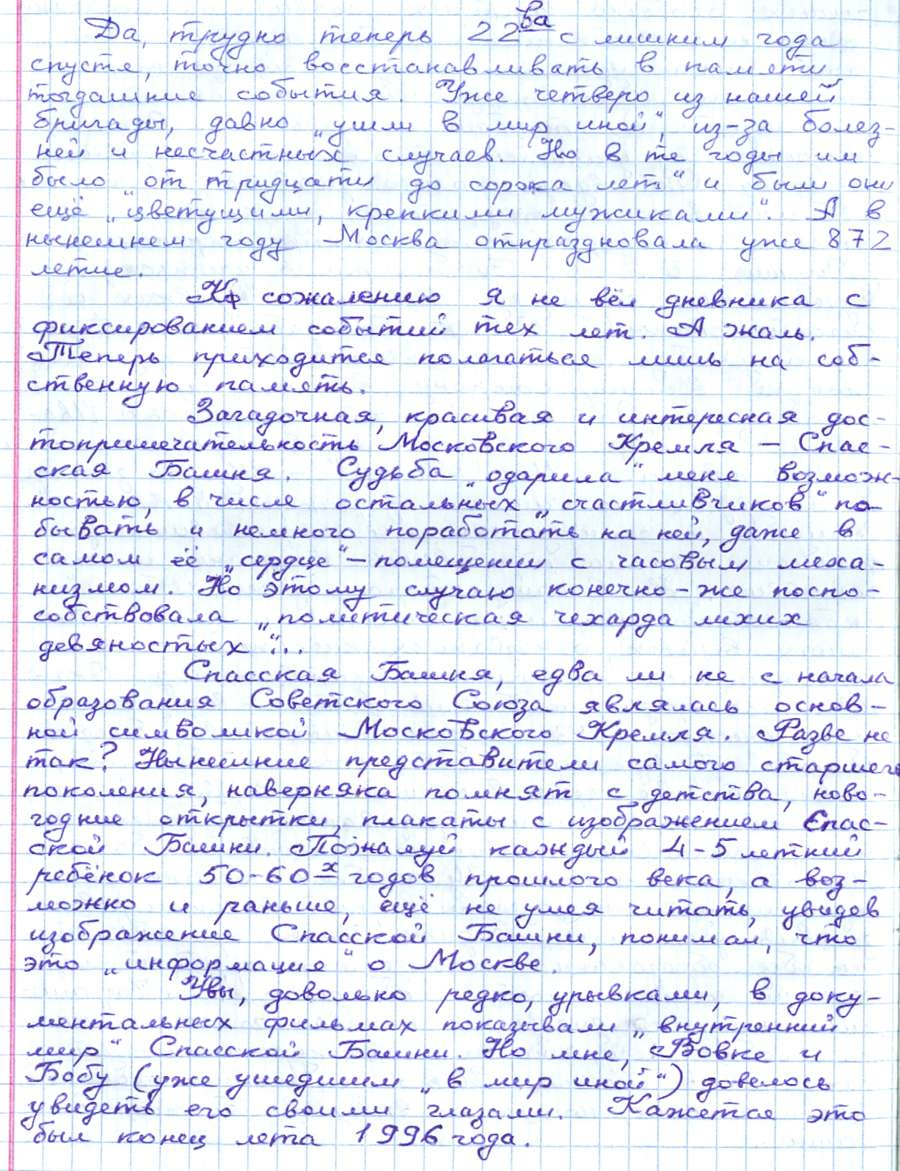 Да, трудно теперь 22ва с лишним года
спустя, точно восстанавливать в памяти
тогдашние события. Уже четверо из нашей
бригады, давно „ушли в мир иной“, из-за болез-
ней и несчастных случаев. Но в те годы им
было „от тридцати до сорока лет“ и были они
ещё „цветущими, крепкими мужиками“. А в
нынешнем году Москва отпраздновала уже 872
летие.
К сожалению я не вёл дневника с
фиксированием событий тех лет. А жаль.
Теперь приходится полагаться лишь на соб-
ственную память.
Загадочная, красивая и интересная дос-
топримечательность Московского Кремля – Спас-
ская Башня. Судьба „одарила“ меня возмож-
ностью, в числе остальных „счастливчиков“ по-
бывать и немного поработать на ней, даже в
самом её „сердце“ – помещении с часовым меха-
низмом. Но этому случаю конечно-же поспо-
собствовала „политическая чехарда лихих
девяностых“...
Спасская Башня, едва ли не с начала
образования Советского Союза являлась основ-
ной символикой Московского Кремля. Разве не
так? Нынешние представители самого старшего
поколения, наверняка помнят с детства, ново-
годние открытки, плакаты с изображением Спас-
ской Башни. Пожалуй каждый 4-5 летний
ребёнок 50-60х годов прошлого века, а воз-
можно и раньше, ещё не умея читать, увидев
изображение Спасской Башни, понимал, что
это „информация“ о Москве.
Увы, довольно редко, урывками, в доку-
ментальных фильмах показывали „внутренний
мир“ Спасской Башни. Но мне, Вовке и
Бобу (уже ушедшим „в мир иной“) довелось
увидеть его своими глазами. Кажется это
был конец лета 1996 года.